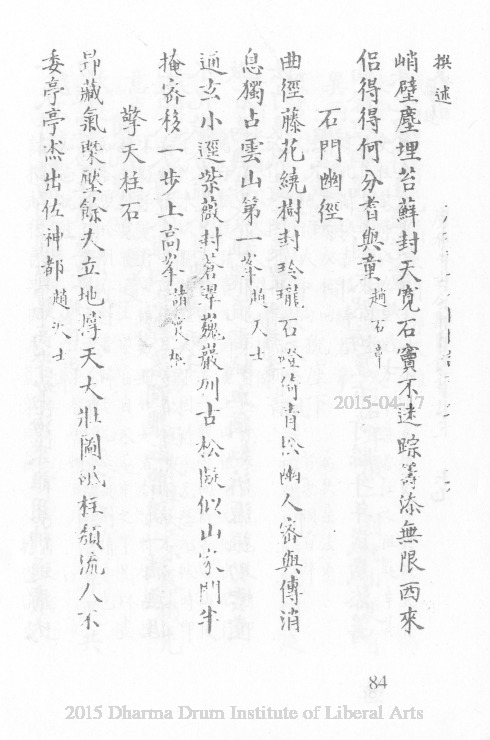 撰述
峭壁塵埋苔蘚封天寬石竇不迷踪籌添無限西來
侶得得何分耆與童趙石亭
石門幽徑
曲徑藤花繞樹封玲瓏石磴倚青松幽人寄與傳消
息獨占雲山第一峯趙天士
通玄小逕紫薇封蒼翠巍巖列古松儼似山家門半
掩容移一步上高峯
擎天柱石
卯藏氣槩壓餘夫立地擎天大壯圖砥柱頹流人不
委亭亭杰出佐神都趙沃士
2015-04-17
84
2015 Dharma Drum Institute of Liberal Arts